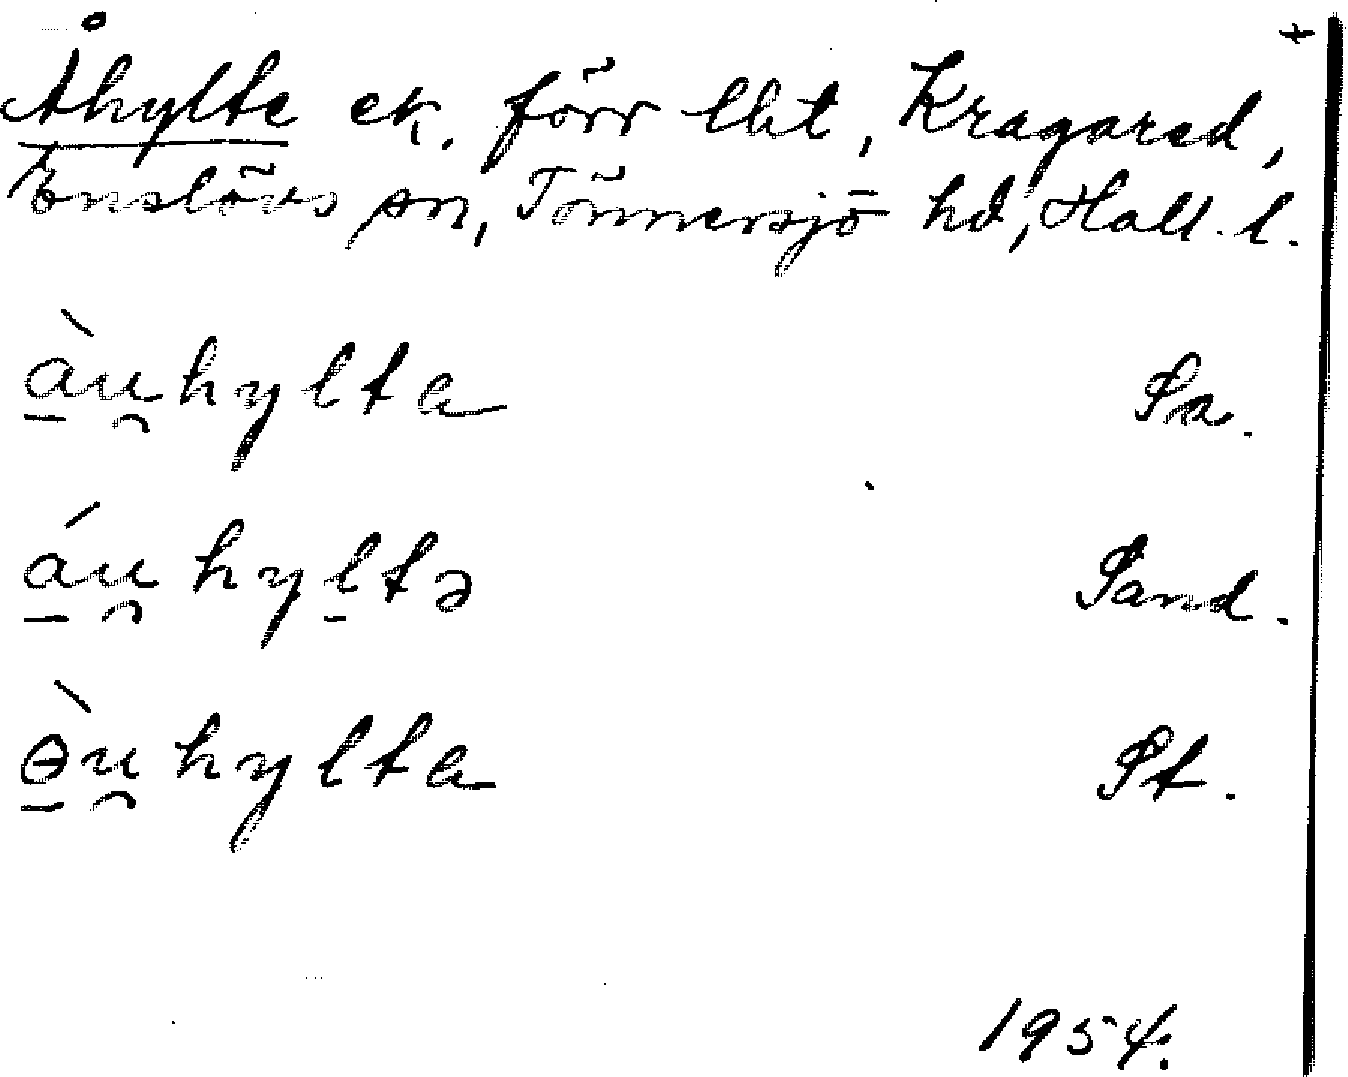 +
Åhylte ek. förr lht, Kragared,
Enslövs sn, Tönnersjö hd, Hall. l.
à̠u̯hylta Sa.
á̠u̯hyl̠tə Sand.
ɵ̠̀u̯hylta St.
1954.